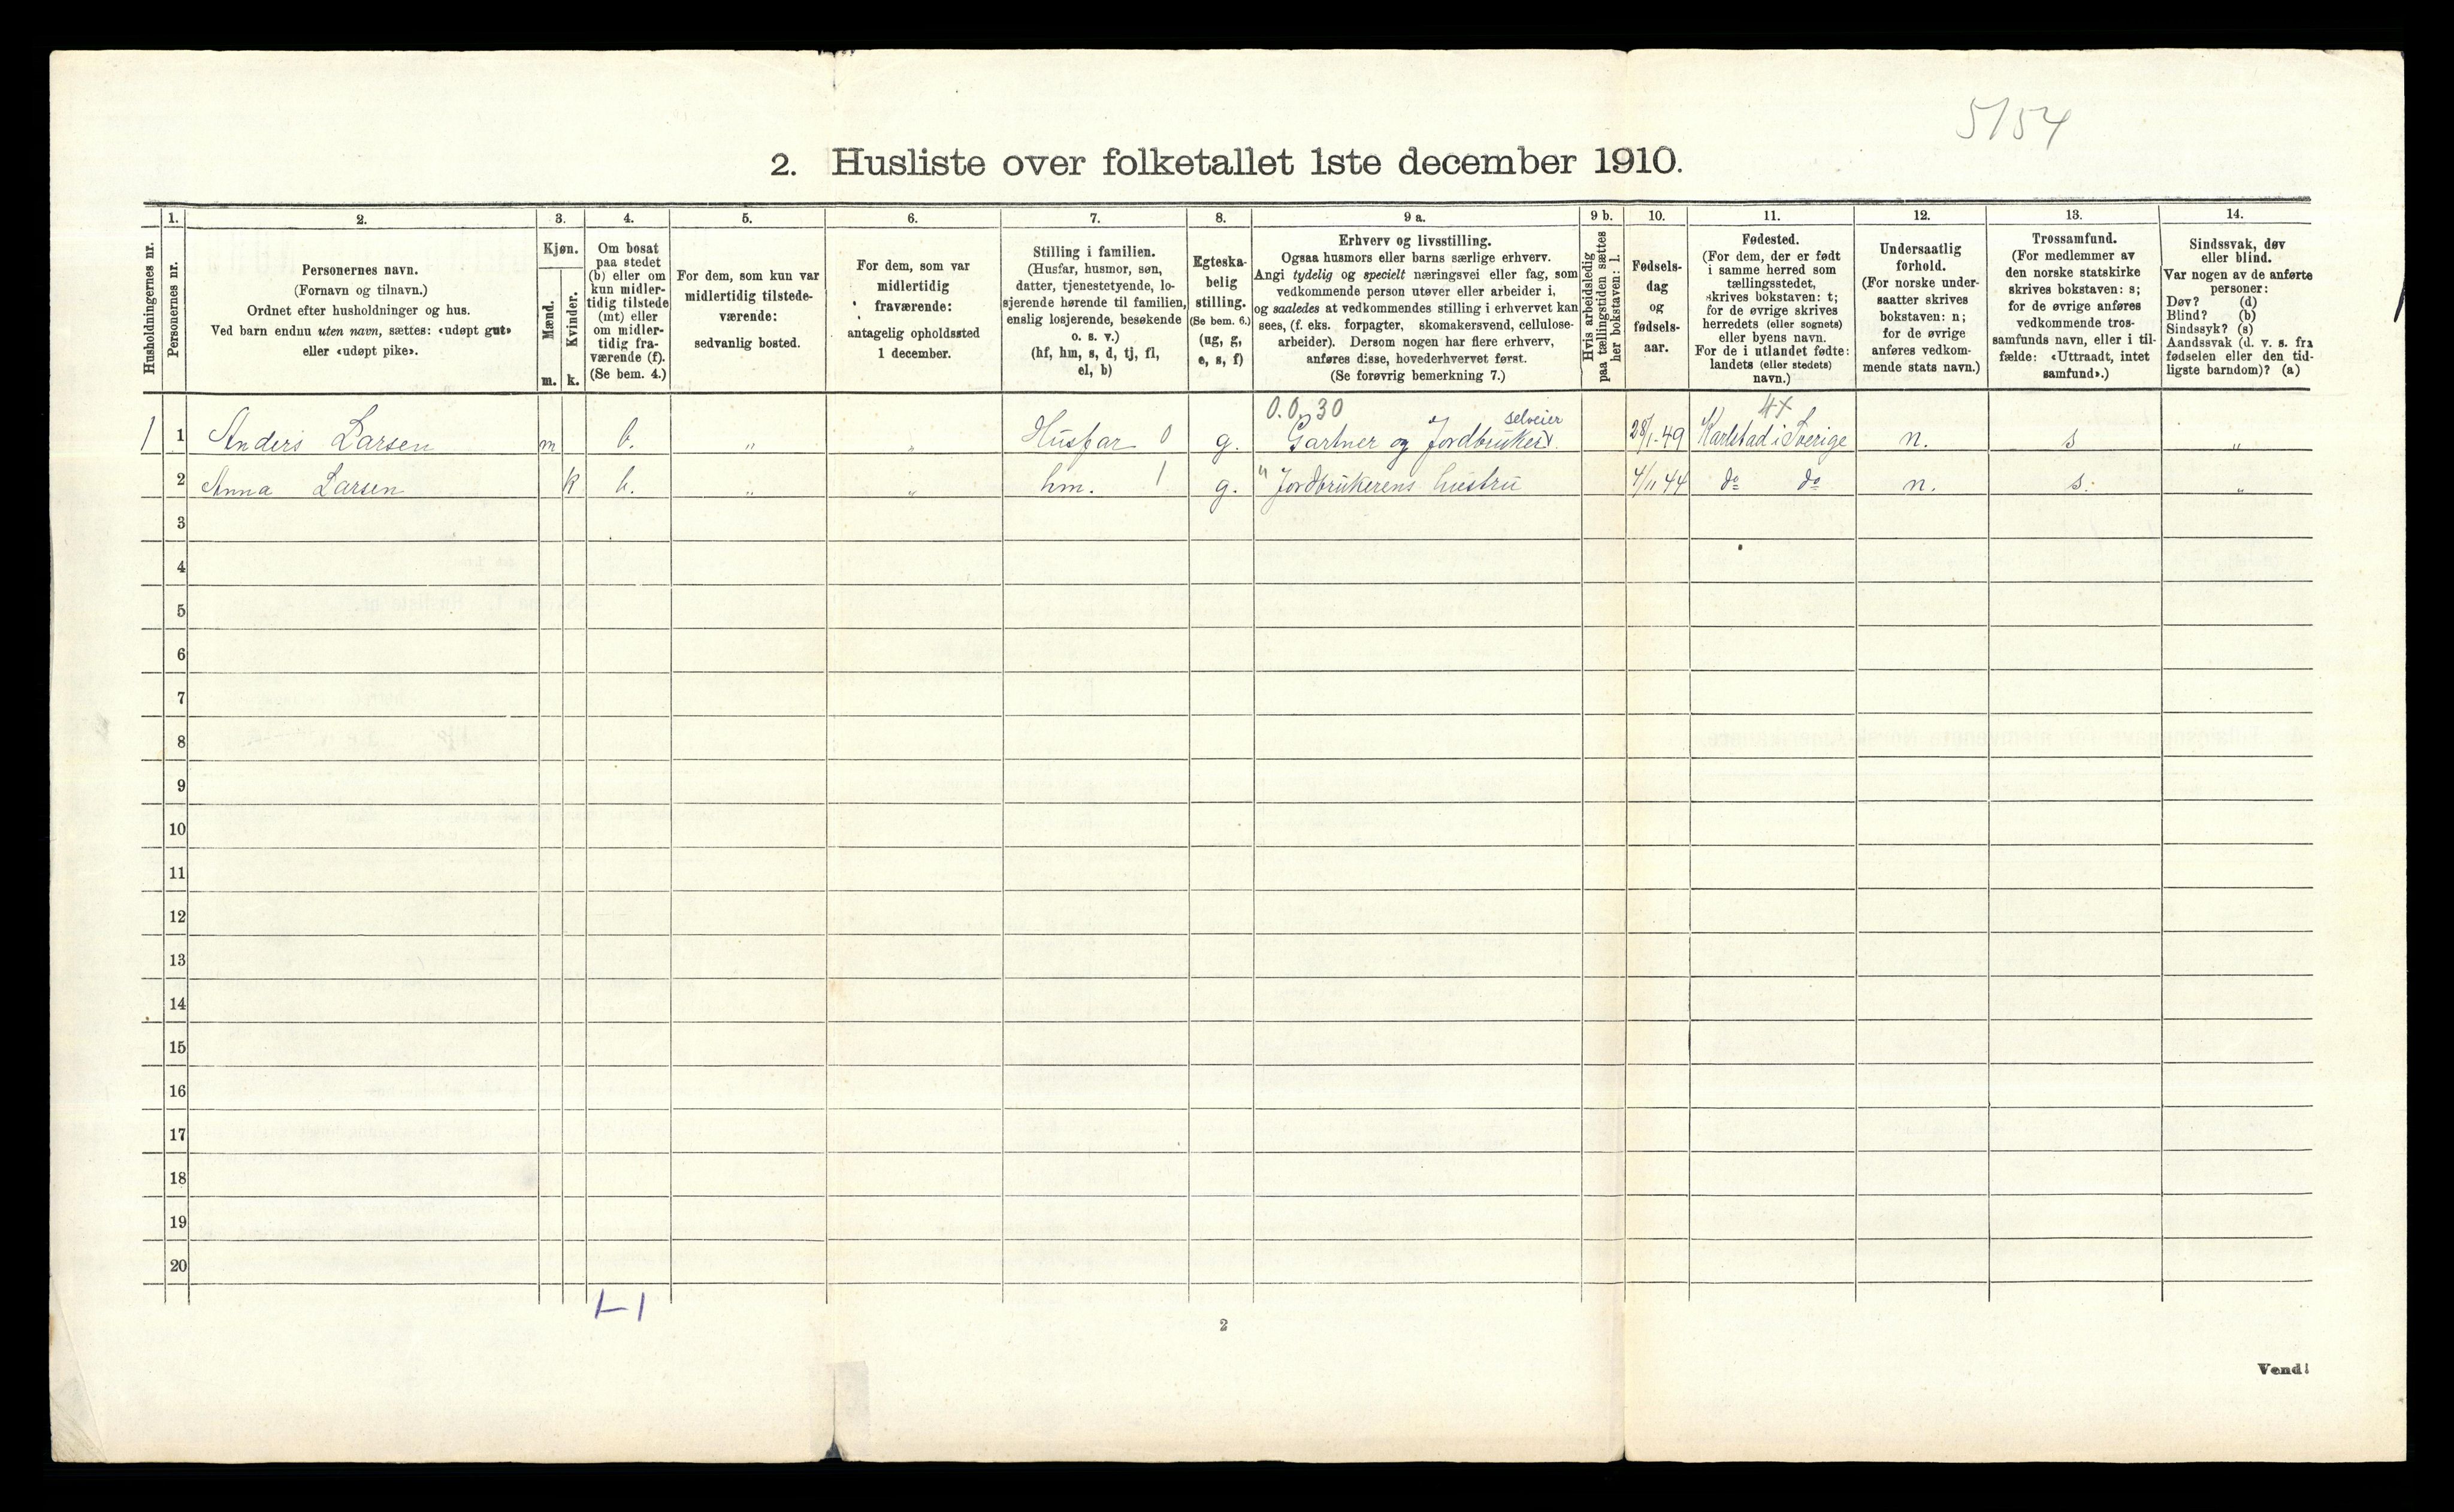 5154
2. Husliste over folketallet 1ste december 1910.
1. 2. 3. 4. 5. 6. 7. 8. 9 a. 9 b. 10. 11. 12. 13. 14.
Husholdningernes nr.
Personernes nr.
Personernes navn.
(Fornavn og tilnavn.)
Ordnet efter husholdninger og hus.
Ved barn endnu uten navn, sættes: «udøpt gut»
eller «udøpt pike».
Kjøn.
Mænd.
Kvinder.
m. k.
Om bosat
paa stedet
(b) eller om
kun midler-
tidig tilstede
(mt) eller
om midler-
tidig fra-
værende (f).
(Se bem. 4.)
For dem, som kun var
midlertidig tilstede-
værende:
sedvanlig bosted.
For dem, som var
midlertidig
fraværende:
antagelig opholdssted
1 december.
Stilling i familien.
(Husfar, husmor, søn,
datter, tjenestetyende, lo-
sjerende hørende til familien,
enslig losjerende, besøkende
o. s. v.)
(hf, hm, s, d, tj, fl,
el, b)
Egteska-
belig
stilling.
(Se bem. 6.)
(ug, g,
e, s, f)
Erhverv og livsstilling.
Ogsaa husmors eller barns særlige erhverv.
Angi tydelig og specielt næringsvei eller fag, som
vedkommende person utøver eller arbeider i,
og saaledes at vedkommendes stilling i erhvervet kan
sees, (f. eks. forpagter, skomakersvend, cellulose-
arbeider). Dersom nogen har flere erhverv,
anføres disse, hovederhvervet først.
(Se forøvrig bemerkning 7.)
Hvis arbeidsledig
paa tællingstiden sættes
her bokstaven: l.
Fødsels-
dag
og
fødsels-
aar.
Fødested.
(For dem, der er født
i samme herred som
tællingsstedet,
skrives bokstaven: t;
for de øvrige skrives
herredets (eller sognets)
eller byens navn.
For de i utlandet fødte:
landets (eller stedets)
navn.)
Undersaatlig
forhold.
(For norske under-
saatter skrives
bokstaven: n;
for de øvrige
anføres vedkom-
mende stats navn.)
Trossamfund.
(For medlemmer av
den norske statskirke
skrives bokstaven: s;
for de øvrige anføres
vedkommende tros-
samfunds navn, eller i til-
fælde: «Uttraadt, intet
samfund».)
Sindssvak, døv
eller blind.
Var nogen av de anførte
personer:
Døv? (d)
Blind? (b)
Sindssyk? (s)
Aandssvak (d. v. s. fra
fødselen eller den tid-
ligste barndom)? (a)
0.0,30 4x
selveier
1 1 Anders Larsen m b. " " Husfar 0 g. Gartner og Jordbruker 28/1-49 Karlstad i Sverige n. s "
2 Anna Larsen k b. " " hm. 1 g. " Jordbrukerens hustru 4/11 44 do do n. s. "
3
4
5
6
7
8
9
10
11
12
13
14
15
16
17
18
19
20
2
Vend!